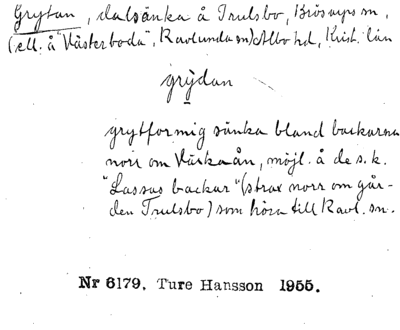 Grytan, dalsänka å Trulsbo, Brösarps sn,
(ell. å "Västerboda", Ravlunda sn) Albo hd, Krist. län
grýdan
grytformig sänka bland backarna
norr om Värkaån, möjl. å de s.k.
"Lassas backar" (strax norr om går-
den Trulsbo) som höra till Ravl. sn.
Nr 6179. Ture Hansson 1955.